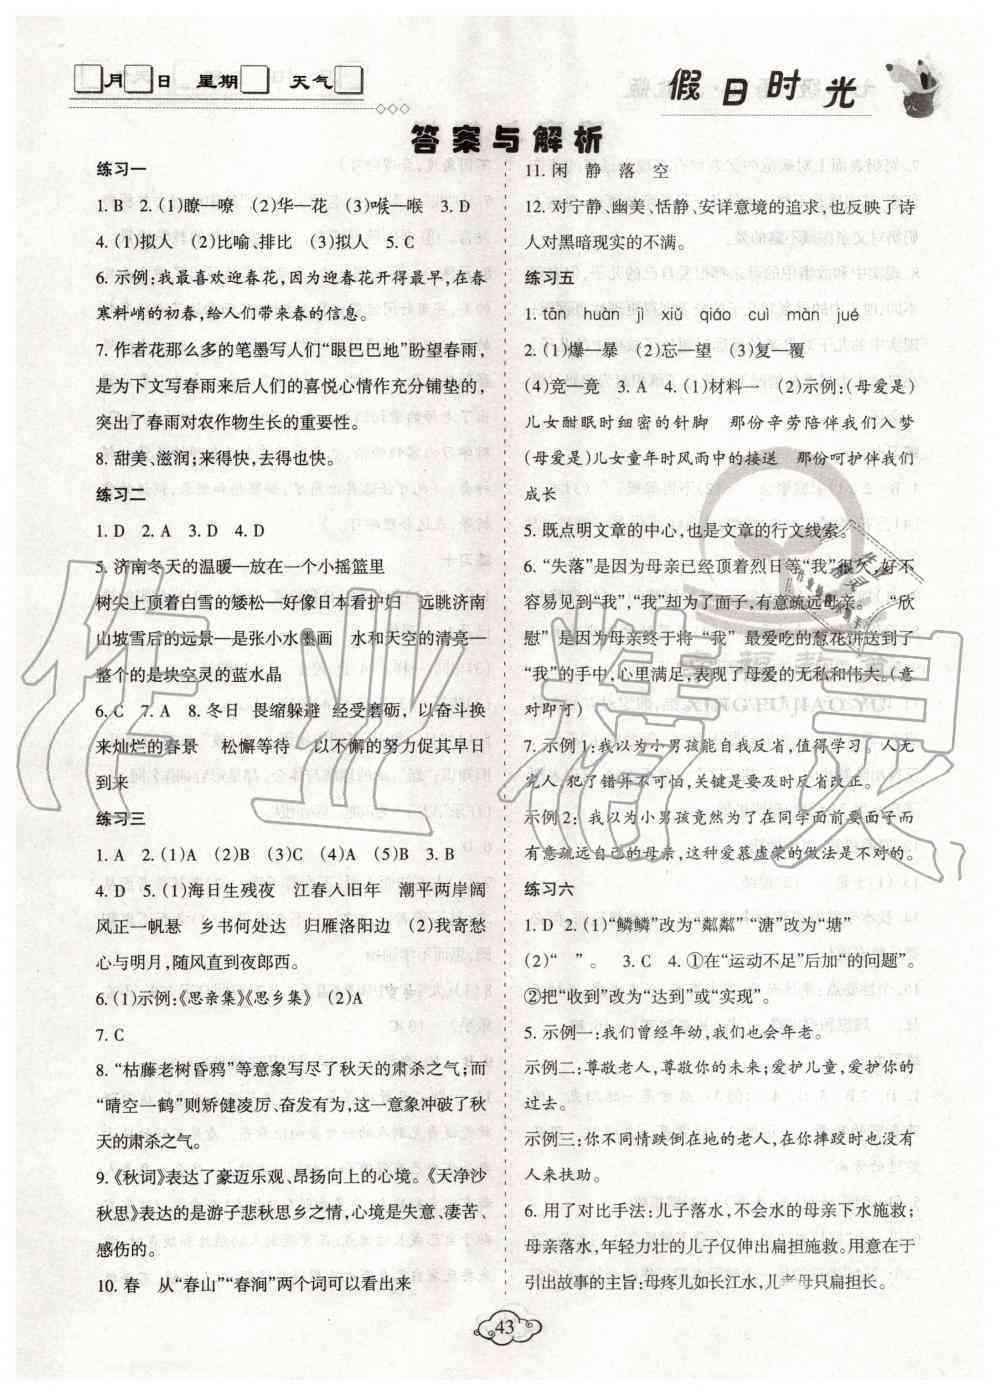 月 日 星期 天气
假日时光
答案与解析
练习一
1. B 2. (1)瞭—嘹 (2)华—花 (3)喉—喉 3. D
4. (1)拟人 (2)比喻、排比 (3)拟人 5. C
6. 示例:我最喜欢迎春花,因为迎春花开得最早,在春
寒料峭的初春,给人们带来春的信息。
7. 作者花那么多的笔墨写人们“眼巴巴地”盼望春雨,
是为下文写春雨来后人们的喜悦心情作充分铺垫的,
突出了春雨对农作物生长的重要性。
8. 甜美、滋润;来得快,去得也快。
练习二
1. D 2. A 3. D 4. D
5. 济南冬天的温暖—放在一个小摇篮里
树尖上顶着白雪的矮松—好像日本看护妇 远眺济南
山坡雪后的远景—是张小水墨画 水和天空的清亮—
整个的是块空灵的蓝水晶
6. C 7. A 8. 冬日 畏缩躲避 经受磨砺,以奋斗换
来灿烂的春景 松懈等待 以不懈的努力促其早日
到来
练习三
1. A 2. (1)A (2)B (3)C (4)A (5)B 3. B
4. D 5. (1)海日生残夜 江春入旧年 潮平两岸阔
风正一帆悬 乡书何处达 归雁洛阳边 (2)我寄愁
心与明月,随风直到夜郎西。
6. (1)示例:《思亲集》《思乡集》 (2)A
7. C
8. “枯藤老树昏鸦”等意象写尽了秋天的肃杀之气;而
“晴空一鹤”则矫健凌厉、奋发有为,这一意象冲破了秋
天的肃杀之气。
9. 《秋词》表达了豪迈乐观、昂扬向上的心境。《天净沙
秋思》表达的是游子悲秋思乡之情,心境是失意、凄苦、
感伤的。
10. 春 从“春山”“春涧”两个词可以看出来
11. 闲 静 落 空
12. 对宁静、幽美、恬静、安详意境的追求,也反映了诗
人对黑暗现实的不满。
练习五
1. tān huàn jì xiǔ qiáo cuì màn jué
2. (1)爆—暴 (2)忘—望 (3)复—覆
(4)竞—竟 3. A 4. (1)材料一 (2)示例:(母爱是)
儿女酣眠时细密的针脚 那份辛劳陪伴我们入梦
(母爱是)儿女童年时风雨中的接送 那份呵护伴我们
成长
5. 既点明文章的中心,也是文章的行文线索。
6. “失落”是因为母亲已经顶着烈日等“我”很久,好不
容易见到“我”,“我”却为了面子,有意疏远母亲。 “欣
慰”是因为母亲终于将“我”最爱吃的葱花饼送到了
“我”的手中,心里满足,表现了母爱的无私和伟大。(意
对即可)
7. 示例1:我以为小男孩能自我反省,值得学习。人无
完人,犯了错并不可怕,关键是要及时反省改正。
示例2:我以为小男孩竟然为了在同学面前要面子而
有意疏远自己的母亲,这种爱慕虚荣的做法是不对的。
练习六
1. D 2. (1)“鳞鳞”改为“粼粼”“溏”改为“塘”
(2)“ ”。 3. C 4. ①在“运动不足”后加“的问题”。
②把“收到”改为“达到”或“实现”。
5. 示例一:我们曾经年幼,我们也会年老。
示例二:尊敬老人,尊敬你的未来;爱护儿童,爱护你的
过去。
示例三:你不同情跌倒在地的老人,在你摔跤时也没有
人来扶助。
6. 用了对比手法:儿子落水,不会水的母亲下水施救;
母亲落水,年轻力壮的儿子仅伸出扁担施救。用意在于
引出故事的主旨:母疼儿如长江水,儿孝母只扁担长。
43
作业精灵